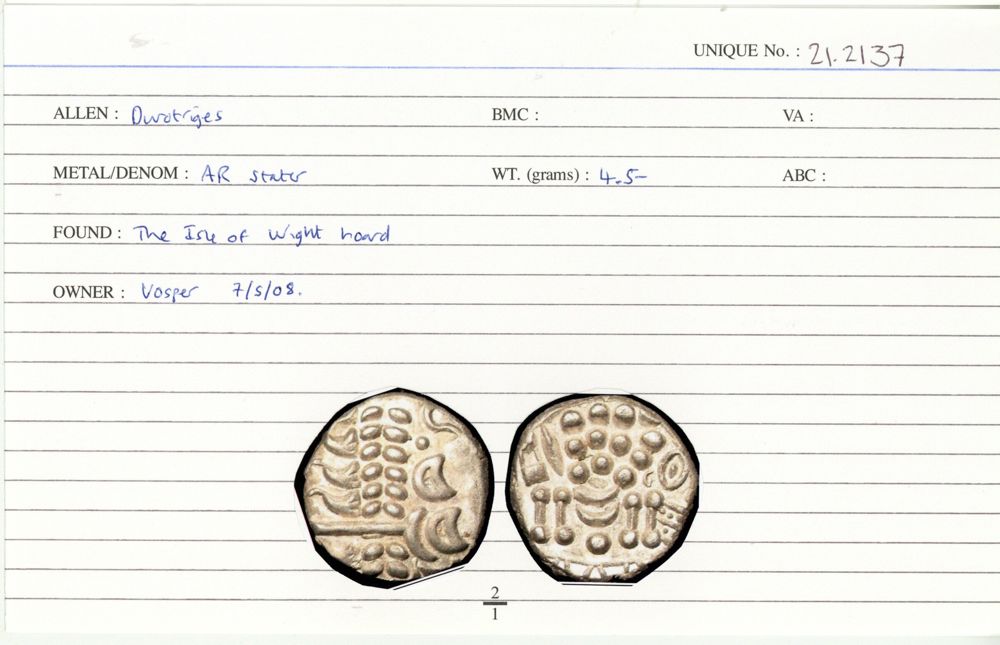 UNIQUE No. : 21.2137
ALLEN : Durotriges BMC : VA :
METAL/DENOM : AR stater WT. (grams) : 4.5– ABC :
FOUND : The Isle of Wight hoard
OWNER : Vosper 7/5/08.
2
1